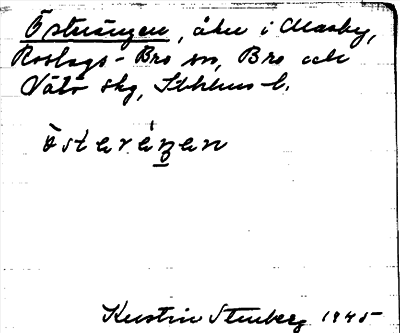 Österängen, åker i Masby,
Roslags-Bro sn, Bro och
Vätö skg, Sthlms l.
östaräŋan
Kerstin Stenberg 1945